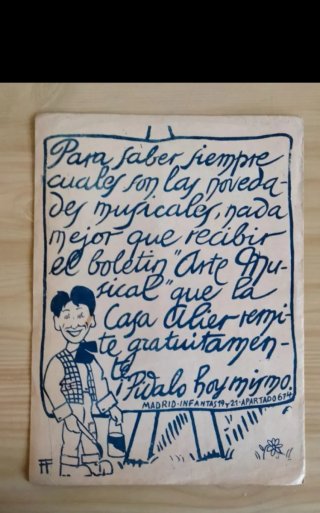 Para saber siempre
cuales son las noveda-
des musicales, nada
mejor que recibir
el boletin "Arte Mu-
sical" que la
Casa Alier remi-
te gratuitamen-
te
¡Pidalo hoy mismo.
MADRID-INFANTAS 19 y 21-APARTADO 674